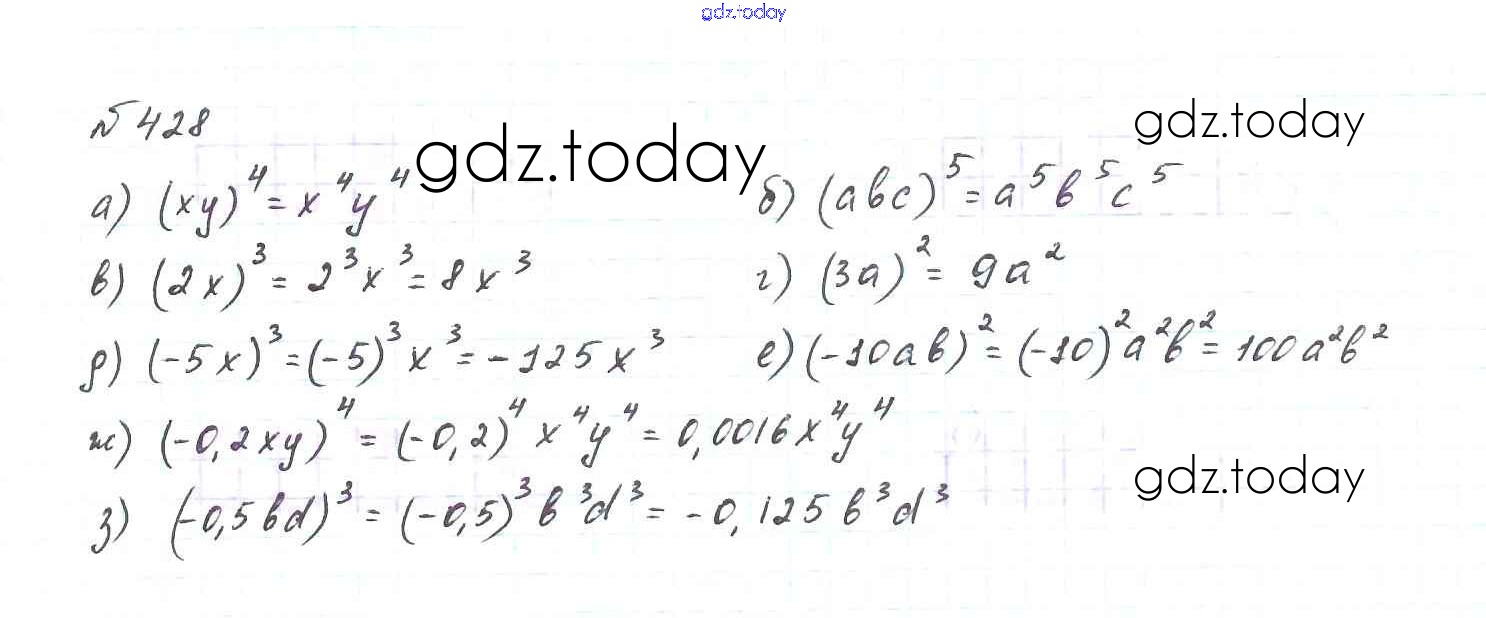 gdz.today
№ 428
gdz.today
gdz.today
а) (xy)⁴ = x⁴y⁴ б) (abc)⁵ = a⁵b⁵c⁵
в) (2x)³ = 2³x³ = 8x³ г) (3a)² = 9a²
д) (-5x)³ = (-5)³x³ = -125x³ е) (-10ab)² = (-10)²a²b² = 100a²b²
ж) (-0,2xy)⁴ = (-0,2)⁴x⁴y⁴ = 0,0016x⁴y⁴
gdz.today
з) (-0,5bd)³ = (-0,5)³b³d³ = -0,125b³d³